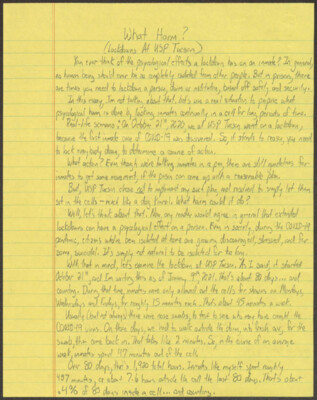 What Harm?
(Lockdowns At USP Tucson)
You ever think of the psychological effects a lockdown has on an inmate? In general,
no human being should ever be completely isolated from other people. But in prison, there
are times you need to lockdown a prison, based on
In this essay, I'm not talking about that. Let's use a real situation to propose what
psychological harm is done by locking inmates continually in a cell for long periods of time.
Real-life scenario: On October 21st, 2020, we at USP Tucson went on a lockdown,
because the first inmate case of COVID-19 was discovered. So, it stands to reason, you need
to lock everybody down, to determine a course of action.
What action? Even though we're talking inmates in a pen, there are still guidelines for
inmates to get some movement, if the prison can come up with a reasonable plan.
But, USP Tucson chose not to implement any such plan, and resolved to simply let them
sit in the cells - much like a dog kennel. What harm could it do?
Well, let's think about that. Now, any reader would agree in general that extended
lockdowns can have a psychological effect on a person. Even in society, during the COVID-19
pandemic, citizens who've been isolated at home are discouraged, stressed, and for
some, suicidal. It's simply not natural to be isolated for too long.
With that in mind, let's examine the lockdown at USP Tucson. As I said, it started
October 21st, and I'm writing this as of January 9th, 2021. That's about 80 days and
counting. During that time, inmates were only allowed out the cells for showers on Mondays,
Wednesdays and Fridays, for roughly 15 minutes each. That's about 45 minutes a week.
Usually (but not always) there were nurse rounds, to test to see who may have caught the
COVID-19 virus. On those days, we had to walk outside the door, take for the
swab, then come back in. That takes like 2 minutes. So, in the course of an average
week, inmates spent 47 minutes out of the cell.
Over 80 days, that's 1,920 total hours. Inmates like myself spent roughly
457 minutes, or about 7.6 hours outside the cell the last 80 days. That's about
.4% of 80 days inside a cell... and counting.